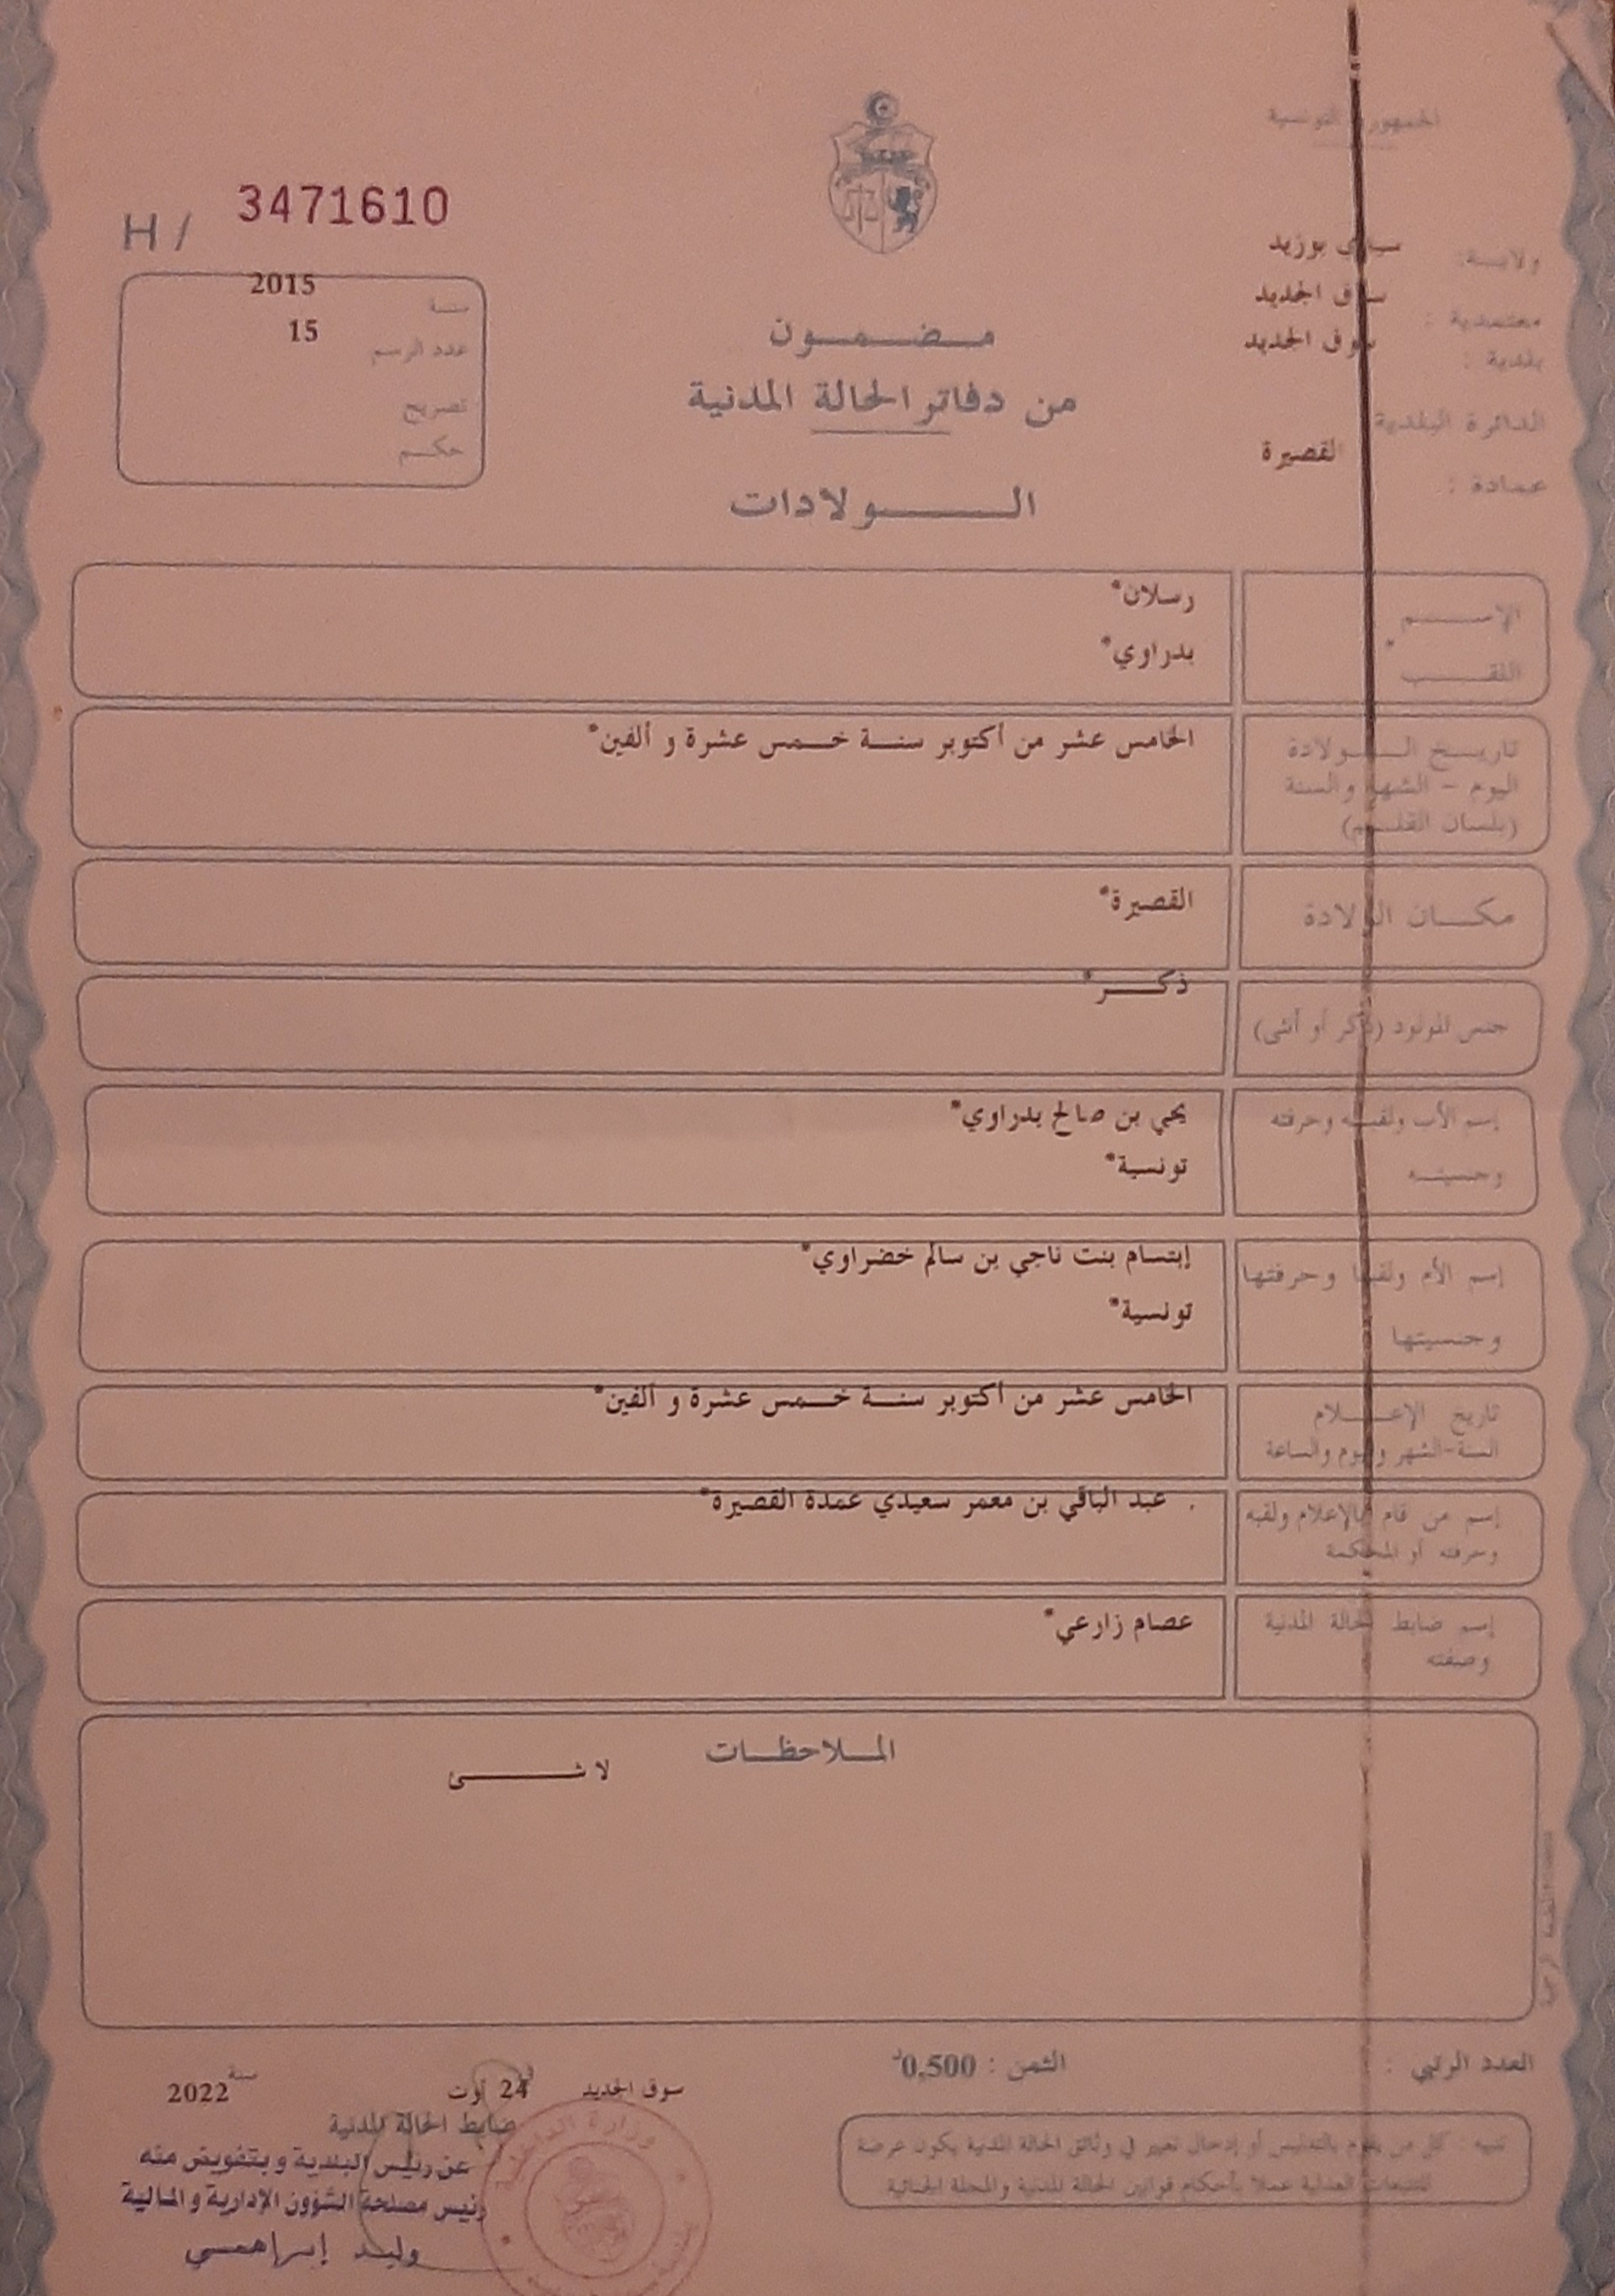 الجمهورية التونسية
H / 3471610
ولايـــة: سيدي بوزيد
معتمدية : سوق الجديد
بلدية : سوق الجديد
الدائرة البلدية
عمادة : القصيرة
سنـة 2015
عدد الرسم 15
تصريح
حكـــم
مـــضـــمـــون
من دفاتر الحالة المدنية
الـــــولادات
الإســـــم رسلان*
اللقـــــب بدراوي*
تاريـــخ الـــولادة الخامس عشر من أكتوبر سنـــة خـــمس عشرة و ألفين*
اليوم - الشهر والسنة
(بلسان القلـــم)
مكـــان الولادة القصيرة*
جنس المولود (ذكر أو أنثى) ذكـــــر*
إسم الأب ولقبـــه وحرفته يحي بن صالح بدراوي*
وجنسيتـــه تونسية*
إسم الأم ولقبها وحرفتها إبتسام بنت ناجي بن سالم خضراوي*
وجنسيتها تونسية*
تاريخ الإعـــــلام الخامس عشر من أكتوبر سنـــة خـــمس عشرة و ألفين*
السنة-الشهر واليوم والساعة
إسم من قام بالإعلام ولقبه . عبد الباقي بن معمر سعيدي عمدة القصيرة*
وحرفته أو المحكمة
إسم ضابط الحالة المدنية عصام زارعي*
وصفته
المـــلاحظـــات
لا شـــــــئ
العدد الرتبي :
الثمن : 0,500د
سوق الجديد في 24 أوت سنة 2022
ضابط الحالة المدنية
عن رئيس البلدية و بتفويض منه
رئيس مصلحة الشؤون الإدارية و المالية
وليد إبراهمي
تنبيه : كل من يقوم بالتدليس أو إدخال تغيير في وثائق الحالة المدنية يكون عرضة
للتتبعات العدلية عملا بأحكام قوانين الحالة المدنية والمجلة الجنائية
وزارة الداخلية